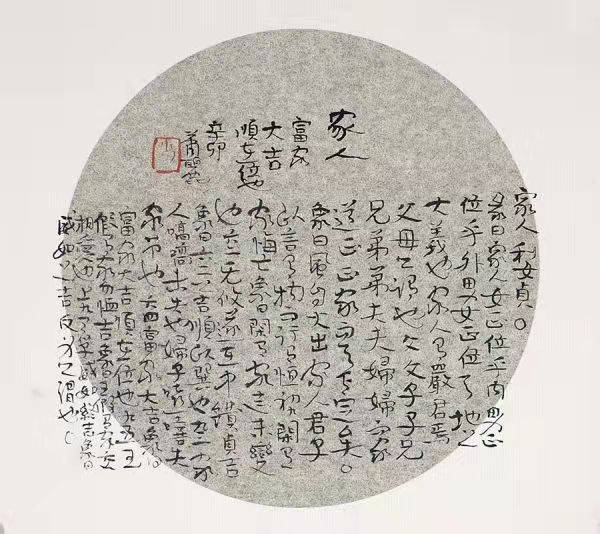 家人
富家
大吉
順在位
辛卯
家人利女貞。
彖曰家人女正位乎內男正
位乎外男女正位天地之
大義也家人有嚴君焉
父母之謂也父父子子兄
兄弟弟夫夫婦婦家
道正正家而天下定矣。
象曰風自火出家人君子
以言有物行有恒初閑有
家悔亡象曰閑有家志未變
也六二无攸遂在中饋貞吉
象曰六二吉順以巽也九三家
人嗃嗃未失也婦子嘻嘻失
家節也六四富家大吉象曰
富家大吉順在位也九五王
假有家勿恤吉象曰王假有家交
相愛也上九有孚威如終吉象曰
威如之吉反身之謂也